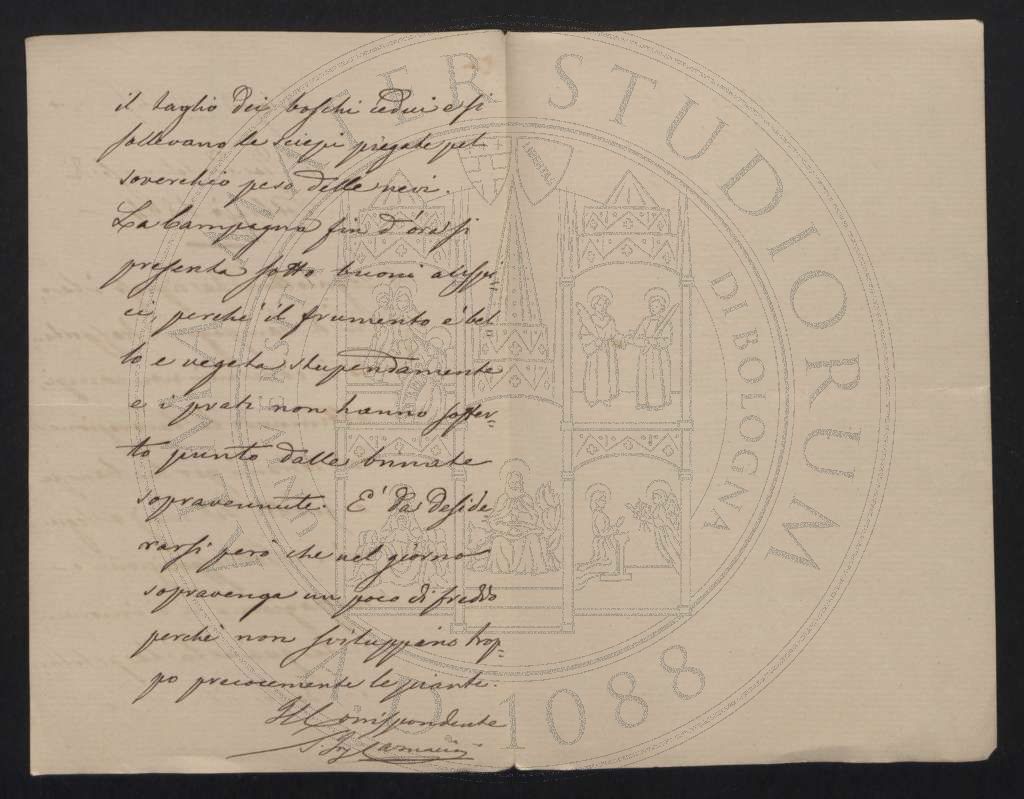 il taglio dei boschi cedui e si
sollevano le sciepi piegate pel
soverchio peso delle nevi.
La Campagna fin d'ora si
presenta sotto buoni auspi-
ci, perché il frumento è bel-
lo e vegeta stupendamente
e i prati non hanno soffer-
to punto dalle brinate
sopravennute. E' da deside-
rarsi però che nel giorno
sopravenga un poco di freddo
perchè non sviluppino trop-
po precocemente le piante.
Il Corrispondente
ALMA MATER STUDIORUM
A.D. 1088
DI BOLOGNA
LIBERTAS